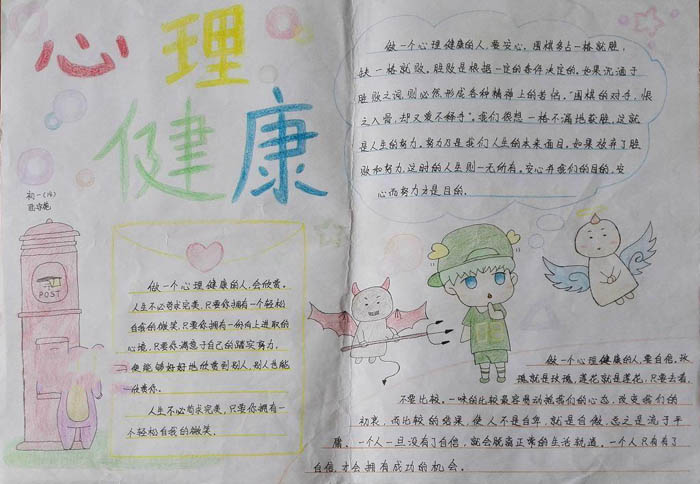 心理
健康
初一(14)
POST
做一个心理健康的人,会欣赏。
人生不必苛求完美,只要你拥有一个轻松
自我的微笑,只要你拥有一份向上进取的
心境,只要你满意于自己的踏实努力,
便能够好好地欣赏到别人,别人也能
欣赏你。
人生不必苛求完美,只要你拥有一
个轻松自我的微笑。
做一个心理健康的人,要安心。围棋多占一格就胜,
缺一格就败。胜败是根据一定的条件决定的。如果沉湎于
胜败之词,则必然形成各种精神上的苦恼。"围棋的对手,恨
之入骨,却又爱不释手"。我们很想一格不漏地获胜,这就
是人生的努力。努力乃是我们人生的本来面目。如果放弃了胜
败和努力,这时的人生则一无所有。安心并我们的目的,安
心而努力才是目的。
做一个心理健康的人,要自信。玫
瑰就是玫瑰,莲花就是莲花,只要去看,
不要比较。一味的比较最容易动摇我们的心态,改变我们的
初衷。而比较的结果,使人不是自卑,就是自傲,总之是流于平
庸。一个人一旦没有了自信,就会脱离正常的生活轨道。一个人只有有了
自信,才会拥有成功的机会。